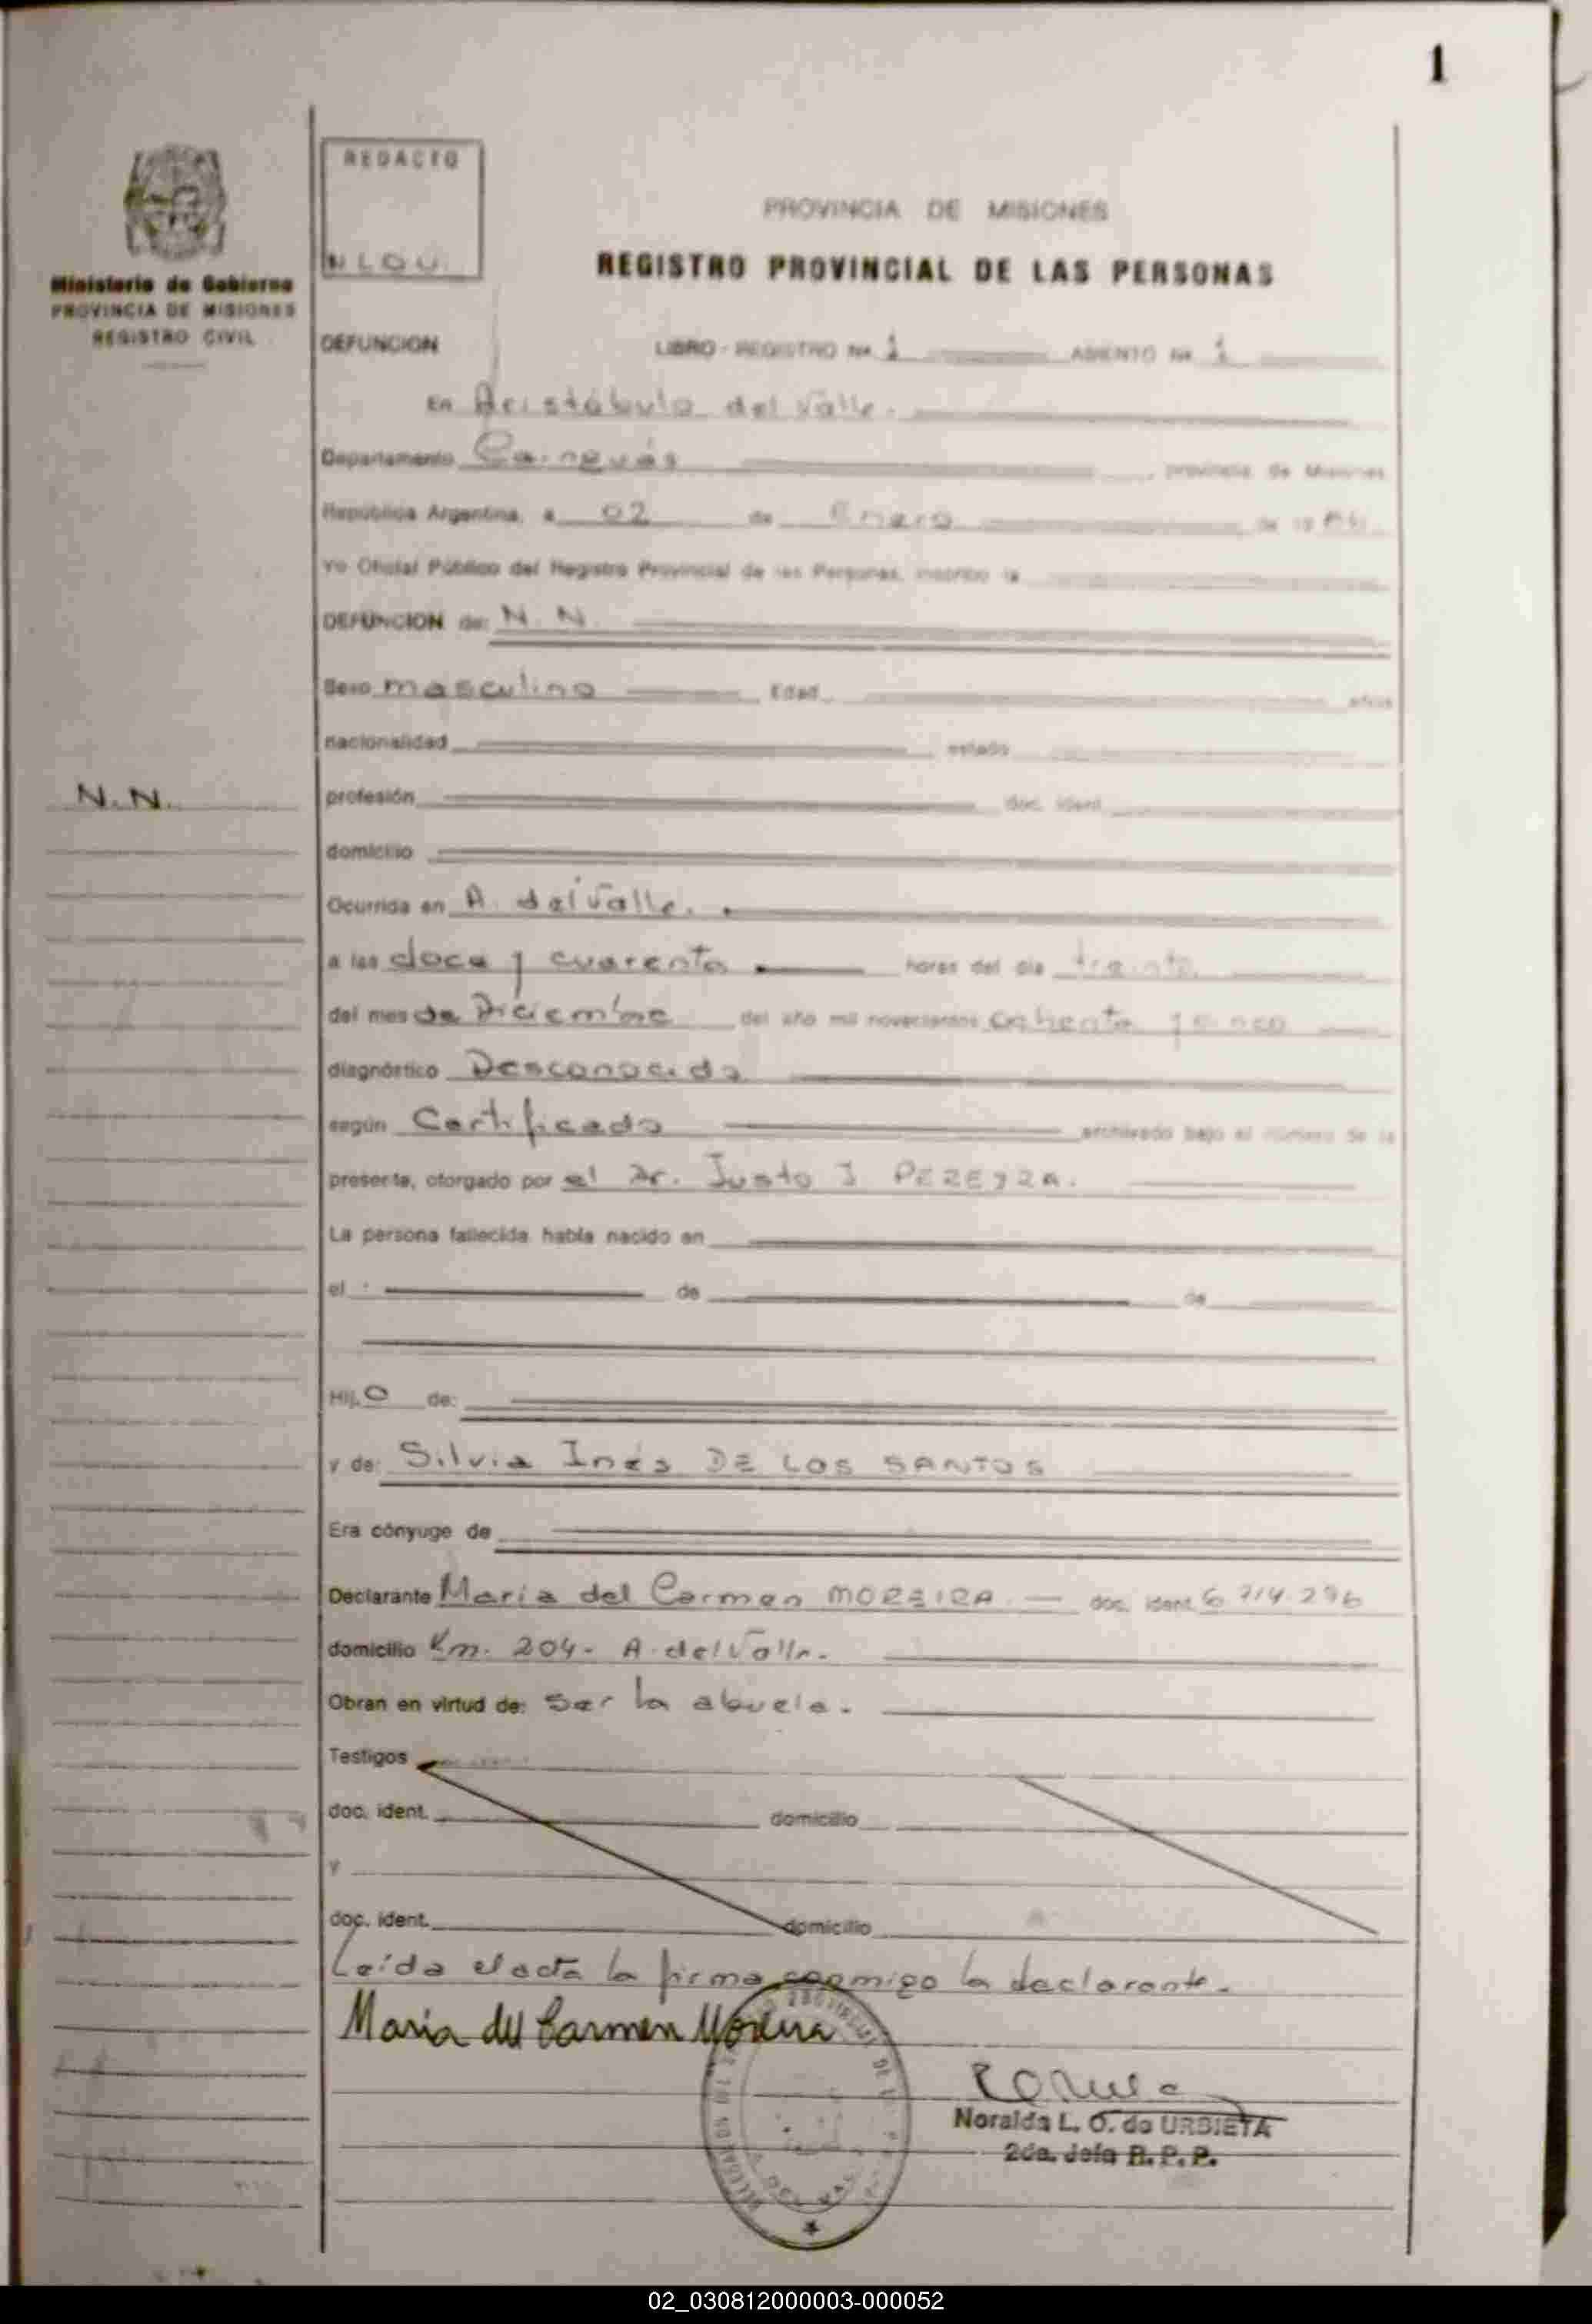 1
REDACTO
N L O U.
Ministerio de Gobierno
PROVINCIA DE MISIONES
REGISTRO CIVIL
PROVINCIA DE MISIONES
REGISTRO PROVINCIAL DE LAS PERSONAS
DEFUNCION LIBRO - REGISTRO Nº 1 ASIENTO Nº 1
En Aristóbulo del Valle.
Departamento Cainguás, provincia de Misiones
República Argentina, a 02 de Enero de 19
Yo Oficial Público del Registro Provincial de las Personas, inscribo la
DEFUNCION de: N. N.
Sexo masculino Edad años
nacionalidad estado
N.N.
profesión doc. ident.
domicilio
Ocurrida en A. del Valle.
a las doce y cuarenta horas del día treinta
del mes de Diciembre del año mil novecientos ochenta y cinco
diagnóstico Desconocido
según Certificado archivado bajo el número de la
presente, otorgado por el Dr. Justo J. PEREYRA.
La persona fallecida había nacido en
el de de
Hij O de:
y de: Silvia Inés DE LOS SANTOS
Era cónyuge de
Declarante María del Carmen MOREIRA. doc. ident. 6.714.296
domicilio Km. 204- A. del Valle.
Obran en virtud de: Ser la abuela.
Testigos
doc. ident. domicilio
y
doc. ident. domicilio
Leída el acta la firma conmigo la declarante.
Maria del Carmen Moreira
Noralda L. O. de URBIETA
2da. Jefa R. P. P.
02_030812000003-000052